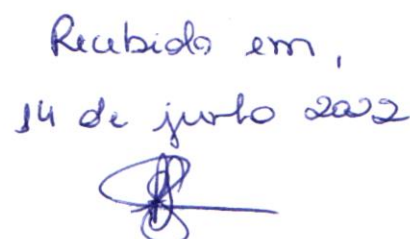 Recebido em,
14 de junho 2022